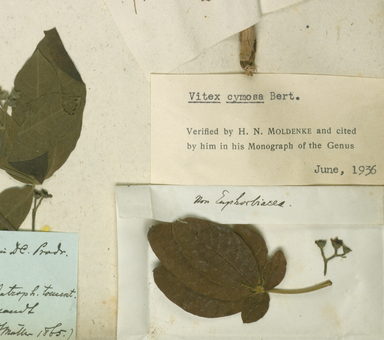 Vitex cymosa Bert.
Verified by H. N. MOLDENKE and cited
by him in his Monograph of the Genus
June, 1936
Non Euphorbiacea.
in DC. Prodr.
1865.)